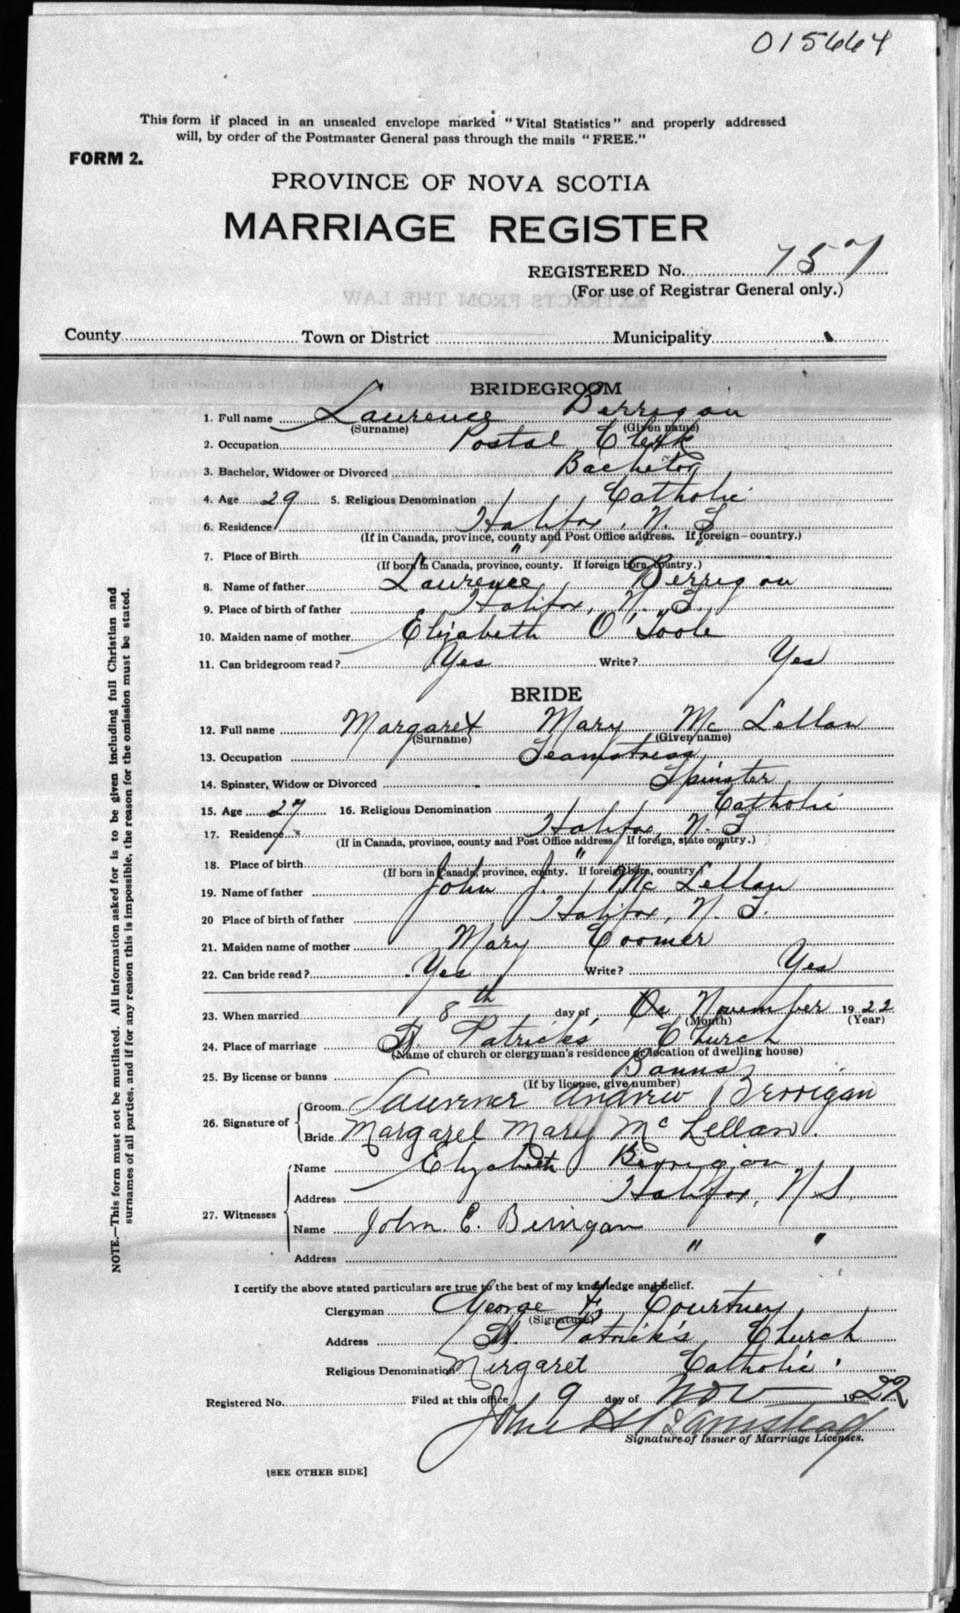 015664
This form if placed in an unsealed envelope marked "Vital Statistics" and properly addressed
will, by order of the Postmaster General pass through the mails "FREE."
FORM 2.
PROVINCE OF NOVA SCOTIA
MARRIAGE REGISTER
REGISTERED No. 757
(For use of Registrar General only.)
County Town or District Municipality
BRIDEGROOM
1. Full name Laurence Berrigan
(Surname) (Given name)
2. Occupation Postal Clerk
3. Bachelor, Widower or Divorced Bachelor
4. Age 29 5. Religious Denomination Catholic
6. Residence Halifax, N. S
(If in Canada, province, county and Post Office address. If foreign—country.)
7. Place of Birth " "
(If born in Canada, province, county. If foreign born, country.)
8. Name of father Laurence Berrigan
9. Place of birth of father Halifax, N. S.
10. Maiden name of mother Elizabeth O'Toole
11. Can bridegroom read? Yes Write? Yes
BRIDE
12. Full name Margaret Mary Mc Lellan
(Surname) (Given name)
13. Occupation Seamstress
14. Spinster, Widow or Divorced Spinster
15. Age 27 16. Religious Denomination Catholic
17. Residence Halifax, N. S
(If in Canada, province, county and Post Office address. If foreign, state country.)
18. Place of birth " "
(If born in Canada, province, county. If foreign born, country.)
19. Name of father John J. Mc Lellan
20 Place of birth of father Halifax, N. S.
21. Maiden name of mother Mary Coomer
22. Can bride read? Yes Write? Yes
23. When married 8th day of November 1922
(Month) (Year)
24. Place of marriage St. Patrick's Church
(Name of church or clergyman's residence or location of dwelling house)
25. By license or banns Banns
(If by license, give number)
26. Signature of
Groom Laurence Andrew Berrigan
Bride Margaret Mary Mc Lellan.
27. Witnesses
Name Elizabeth Berrigan
Address Halifax, N S.
Name John E. Berrigan
Address " "
I certify the above stated particulars are true to the best of my knowledge and belief.
Clergyman George F. Courtney
(Signature)
Address St. Patrick's Church
Religious Denomination Catholic.
Registered No. Filed at this office 9 day of Nov 1922
John
Signature of Issuer of Marriage Licenses.
[SEE OTHER SIDE]
NOTE.—This form must not be mutilated. All information asked for is to be given including full Christian and
surnames of all parties, and if for any reason this is impossible, the reason for the omission must be stated.